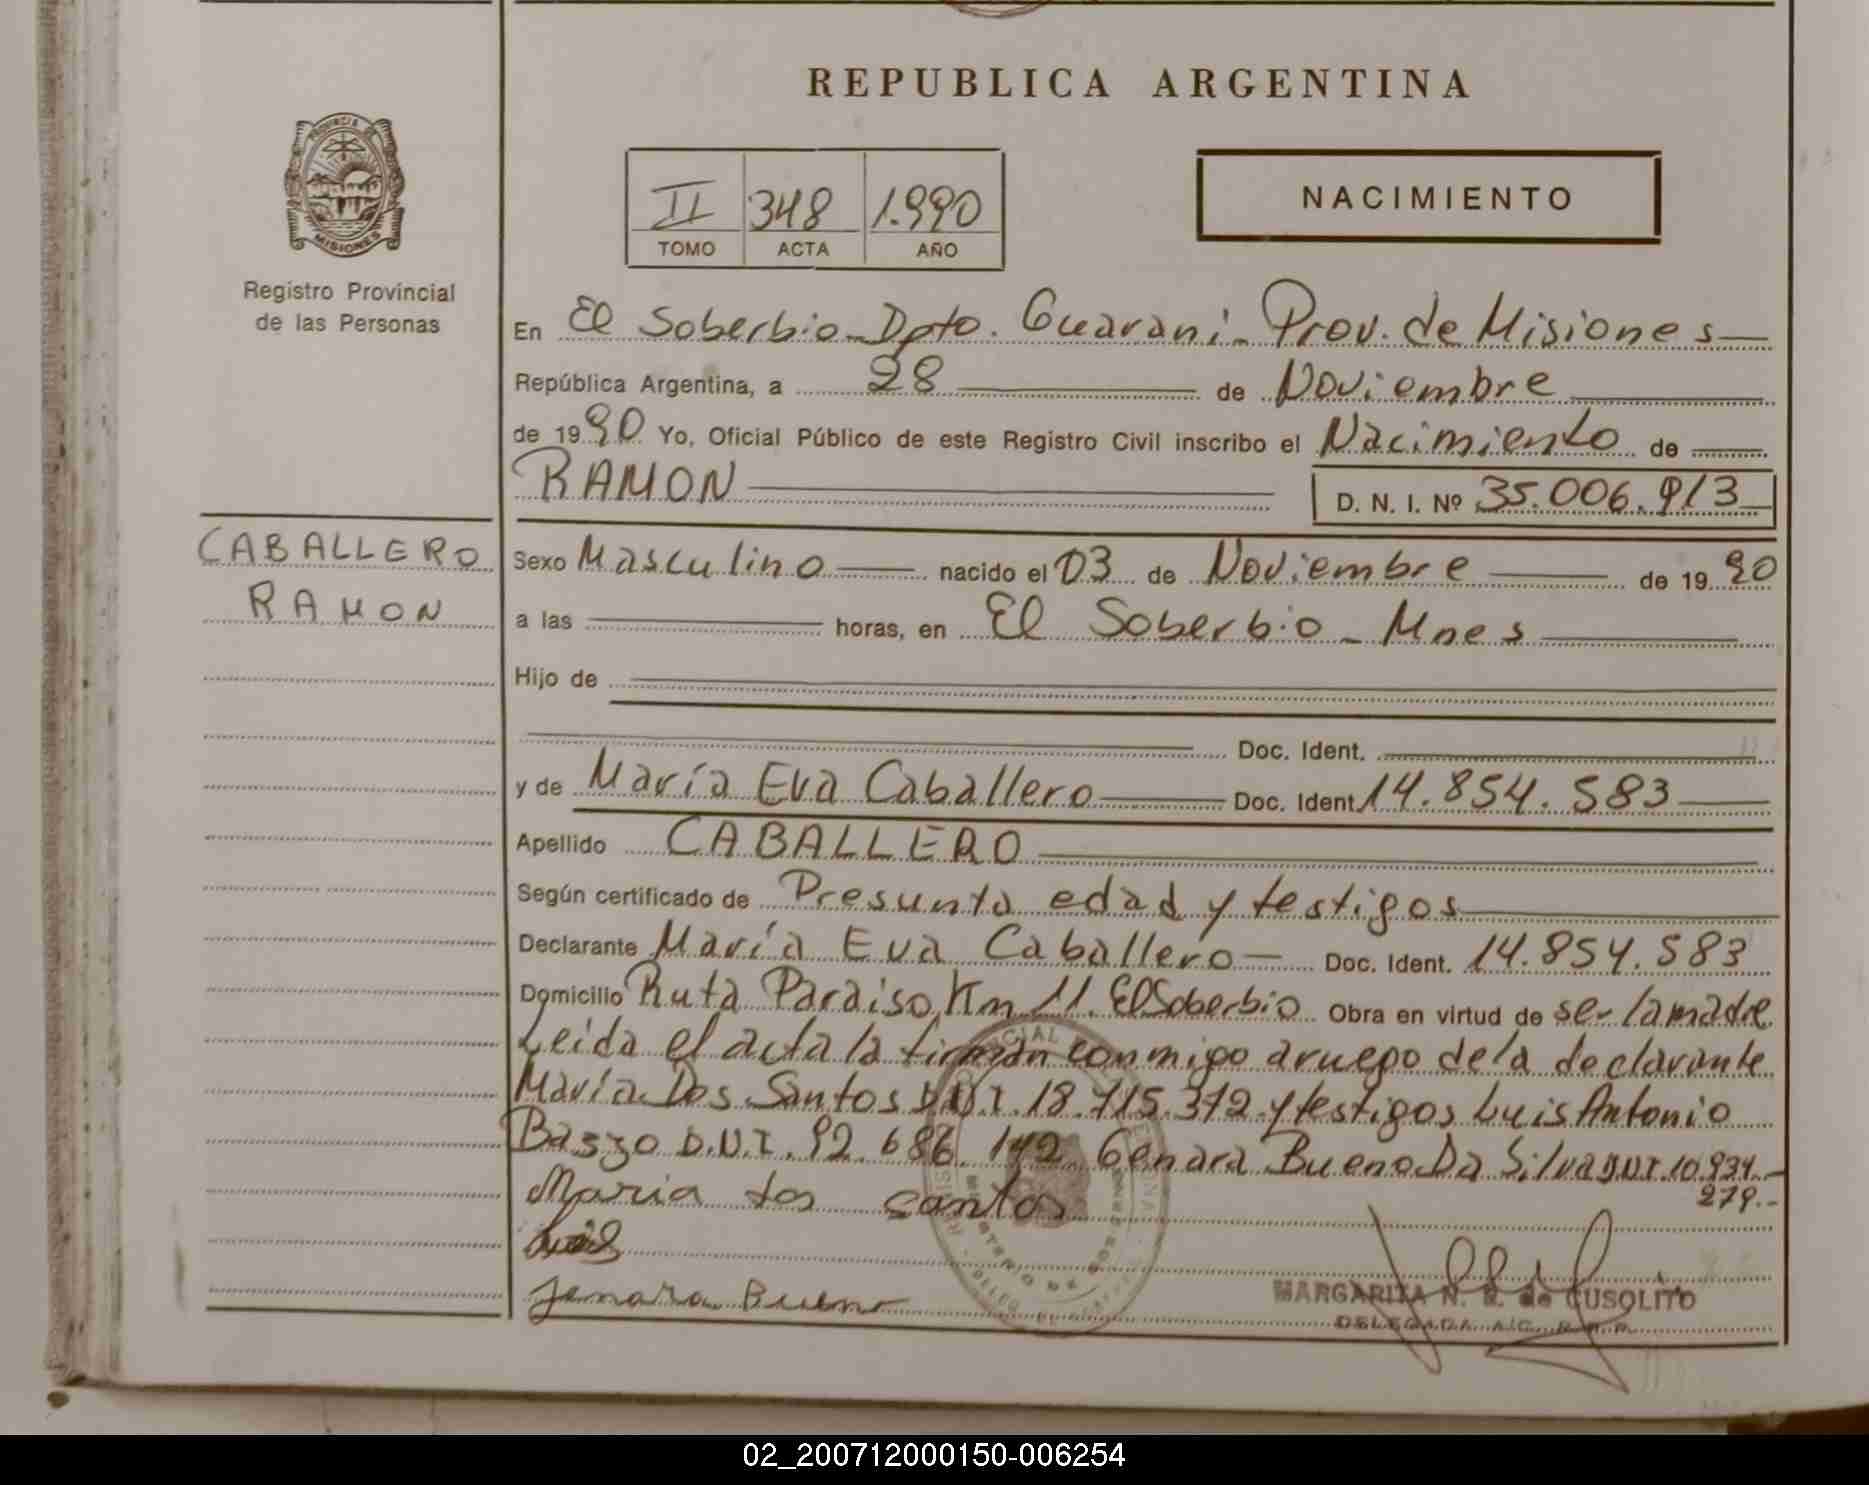 REPUBLICA ARGENTINA
PROVINCIA DE
MISIONES
Registro Provincial
de las Personas
II 348 1.990
TOMO ACTA AÑO
NACIMIENTO
En El Soberbio - Dpto. Guaraní - Prov. de Misiones
República Argentina, a 28 de Noviembre
de 1990 Yo, Oficial Público de este Registro Civil inscribo el Nacimiento de
RAMON D. N. I. Nº 35.006.913
CABALLERO
RAMON
Sexo Masculino nacido el 03 de Noviembre de 1990
a las horas, en El Soberbio - Mnes
Hijo de
Doc. Ident.
y de María Eva Caballero Doc. Ident. 14.854.583
Apellido CABALLERO
Según certificado de Presunta edad y testigos
Declarante María Eva Caballero Doc. Ident. 14.854.583
Domicilio Ruta Paraiso Km 11. El Soberbio Obra en virtud de ser la madre
Leida el acta la firman conmigo a ruego de la declarante
María Dos Santos D.N.I. 18.715.372 y testigos Luis Antonio
D.N.I. 92.686.142 Genara Bueno Da Silva DNI. 10.934.-
279.-
Maria dos santos
Jenara Bueno
MARGARITA N. de CUSOLITO
DELEGADA A/C. R.P.P.
02_200712000150-006254